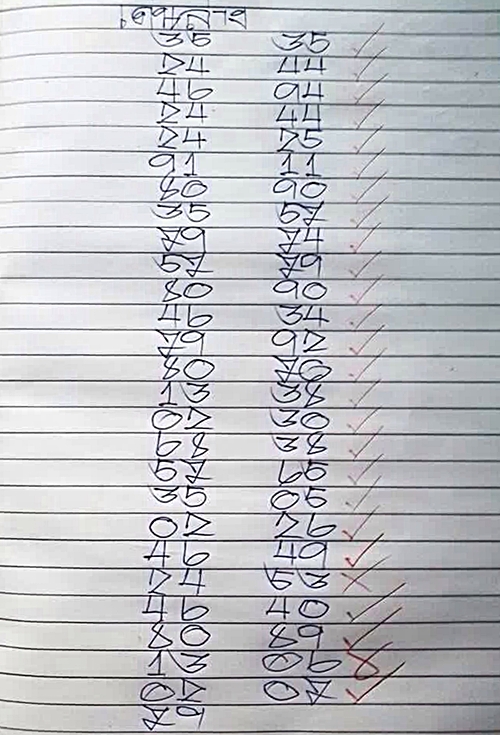 35 35 ✓
24 44 ✓
46 94 ✓
24 44 ✓
24 25 ✓
91 11 ✓
80 90 ✓
35 57 ✓
79 74 ✓
57 79 ✓
80 90 ✓
46 34 ✓
79 92 ✓
80 76 ✓
13 38 ✓
02 30 ✓
68 38 ✓
57 65 ✓
35 05 ✓
02 26 ✓
46 49 ✓
24 53 ✗
46 40 ✓
80 89 ✓
13 06
02 07 ✓
79